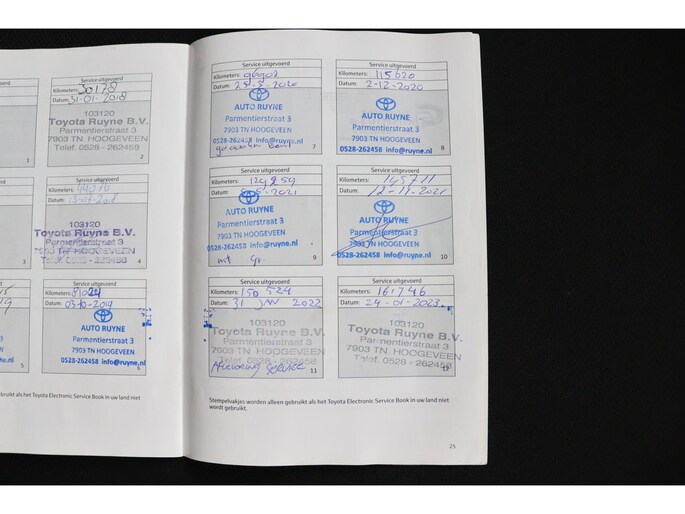 Service uitgevoerd
Kilometers: 30178
Datum: 31-01-2018
103120
Toyota Ruyne B.V.
Parmentierstraat 3
7903 TN HOOGEVEEN
Telef. 0528 - 262459
1
2
Service uitgevoerd
Kilometers:
Datum:
103120
Toyota Ruyne B.V.
Parmentierstraat 3
7903 TN HOOGEVEEN
3
4
Service uitgevoerd
Kilometers:
Datum: 03-10-2019
AUTO RUYNE
Parmentierstraat 3
7903 TN HOOGEVEEN
0528-262458 info@ruyne.nl
ruyne.nl
5
6
ebruikt als het Toyota Electronic Service Book in uw land niet
Service uitgevoerd
Kilometers:
Datum:
AUTO RUYNE
Parmentierstraat 3
7903 TN HOOGEVEEN
0528-262458 info@ruyne.nl
7
Service uitgevoerd
Kilometers: 115620
Datum: 2-12-2020
AUTO RUYNE
Parmentierstraat 3
7903 TN HOOGEVEEN
0528-262458 info@ruyne.nl
8
Service uitgevoerd
Kilometers: 129259
Datum:
AUTO RUYNE
Parmentierstraat 3
7903 TN HOOGEVEEN
0528-262458 info@ruyne.nl
9
Service uitgevoerd
Kilometers: 145711
Datum: 12-11-2021
AUTO RUYNE
Parmentierstraat 3
7903 TN HOOGEVEEN
0528-262458 info@ruyne.nl
10
Service uitgevoerd
Kilometers: 150 524
Datum: 31 JAN 2022
103120
Toyota Ruyne B.V.
Parmentierstraat 3
7903 TN HOOGEVEEN
Telef. 0528 - 262458
Aflevering Service
11
Service uitgevoerd
Kilometers: 161746
Datum: 24-01-2023
103120
Toyota Ruyne B.V.
Parmentierstraat 3
7903 TN HOOGEVEEN
Telef. 0528 - 262458
12
Stempelvakjes worden alleen gebruikt als het Toyota Electronic Service Book in uw land niet
wordt gebruikt.
25